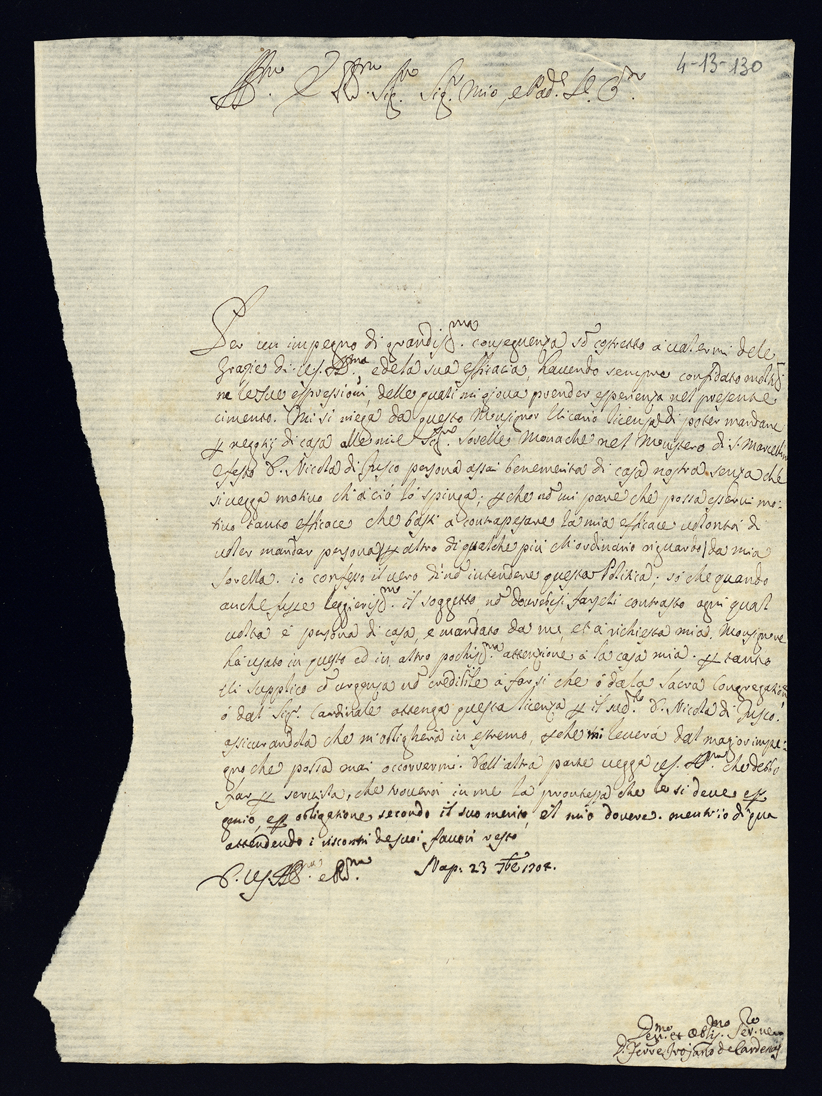 4-13-130
Ill.mo e R.mo Sig.re Sig.r mio, e Pad.e
Per un impegno di grandis.ma conseguenza sò costretto a valermi dele
Grazie di V.S. Ill.ma e dela sua efficacia, havendo sempre confidato moltis.mo
ne le sue espressioni, delle quali mi giova prender esperienza nel presente
cimento. Mi si niega da questo Monsignor Vicario licenza di poter mandare
p negozij di casa alle mie Sig.re Sorelle Monache nel Monistero di S. Marcellino
e festo D. Nicola di Fusco persona assai benemerita di casa nostra senza che
si vegga motivo ch'à ciò lo spinga; p che nò mi pare che possa esservi mo-
tivo tanto efficace che basti a contrapesare la mia efficace volontà di
voler mandar persona p altro di qualche più ch'ordinario riguardo da mia
Sorella. io confesso il vero di nò intendere questa Politia; sò che quando
anche fusse leggieris.mo il soggetto, nò dovrebbesi farseli contrasto ogni qual
volta è persona di casa, e mandato da me, et à richiesta mia. Monsignore
hà usato in questo ed in altro pochis.ma attenzione à la casa mia. p tanto
la supplico cò urgenza nò credibile à far si che ò dala Sacra Congregatione
ò dal Sig.r Cardinale ottenga questa licenza p il sud.to D. Nicola di Fusco.
assicurandola che m'obligherà in estremo, p che mi leverà dal magior impe-
gno che possa mai occorrermi. Dall'altra parte vegga V.S. Ill.ma che debbo
far p servirla, che troverà in me la prontezza che le si deve e p
genio, e p obligatione secondo il suo merito, e'l mio dovere. mentr'io di qua
attendendo i riscontri de suoi favori resto
D. V.S. Ill.ma e R.ma Nap. 23 7bre 1704.
Dev.mo et Oblig.mo Ser.re vero
D. Ferre Trojano de Cardenas